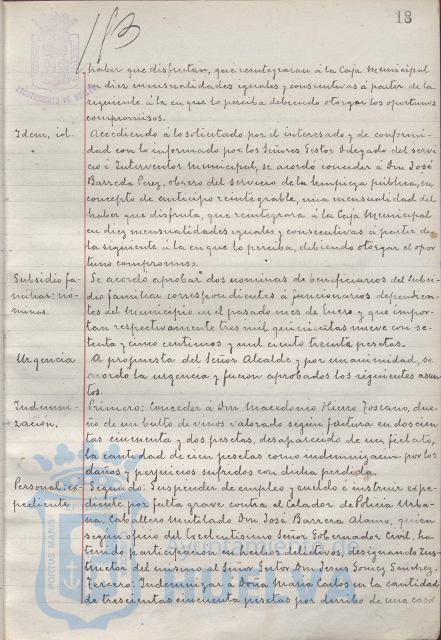 18
haber que disfrutan, que reintegraran á la Caja Municipal
en diez mensualidades iguales y consecutivas á partir de la
siguiente á la en que lo perciba debiendo otorgar los oportunos
compromisos.
Idem, id. Accediendo á lo solicitado por el interesado y de conformi-
dad con lo informado por los Señores Gestor Delegado del servi-
cio é Interventor Municipal, se acordó conceder á Don José
Barreda Perez, obrero del servicio de la limpieza pública, en
concepto de anticipo reintegrable, una mensualidad del
haber que disfruta, que reintegrará á la Caja Municipal
en diez mensualidades iguales y consecutivas á partir de
la siguiente á la en que lo perciba, debiendo otorgar el opor-
tuno compromiso.
Subsidio fa- Se acordó aprobar dos nominas de beneficiarios del Subsi-
miliar: no- dio familiar correspondientes á funcionarios dependien-
minas. tes del Municipio en el pasado mes de Enero y que impor-
tan respectivamente tres mil quinientas nueve con se-
tenta y cinco centimos y mil ciento treinta pesetas.
Urgencia A propuesta del Señor Alcalde y por unanimidad, se
acordó la urgencia y fueron aprobados los siguientes asun-
tos.
Indemni- Primero: Conceder á Don Macedonio Hierro Toscano, due-
zación. ño de un bulto de vinos valorado según factura en doscien
tas cincuenta y dos pesetas, desaparecido de un fielato,
la cantidad de cien pesetas como indemnizacion por los
daños y perjuicios sufridos con dicha perdida.
Personal: ex- Segundo: Suspender de empleo y sueldo é instruir expe-
pediente. diente por falta grave contra el Celador de Policia Urba-
na, Caballero Mutilado Don José Barrera Alamo, quien
según oficio del Excelentisimo Señor Gobernador Civil, ha
tenido participación en hechos delictivos, designando Ins-
tructor del mismo al Señor Gestor Don Jesus Gomez Sanchez.
Tercero: Indemnizar á Doña Maria Carlos en la cantidad
de trescientas cincuenta pesetas por derribo de una casa